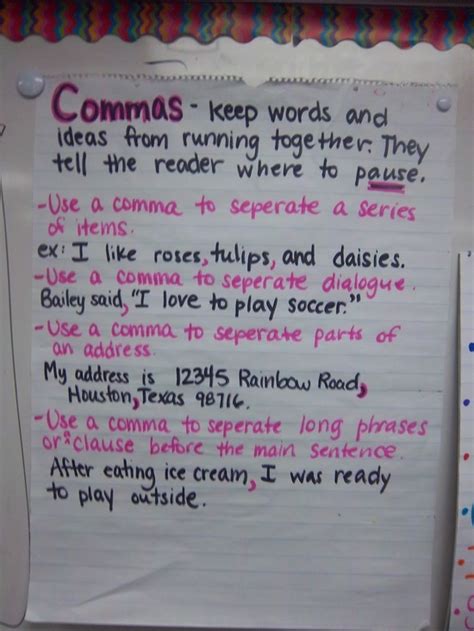 Commas - keep words and
ideas from running together. They
tell the reader where to pause.
-Use a comma to seperate a series
of items.
ex: I like roses, tulips, and daisies.
-Use a comma to seperate dialogue.
Bailey said, "I love to play soccer."
-Use a comma to seperate parts of
an address.
My address is 12345 Rainbow Road,
Houston, Texas 98716.
-Use a comma to seperate long phrases
or a clause before the main sentence.
After eating ice cream, I was ready
to play outside.